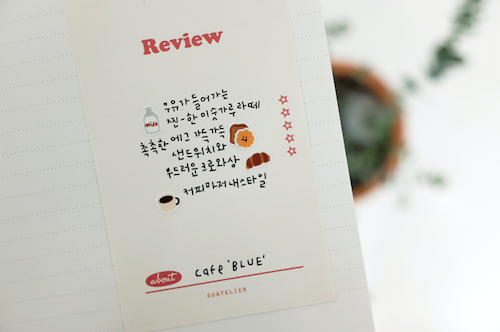 Review
우유가 들어가는
milk
찐-한 이슷가루 라떼
촉촉한 에그 가득가득
샌드위치와
부드러운 크로와상
커피마저 내스타일
about cafe 'BLUE'
SOATELIER